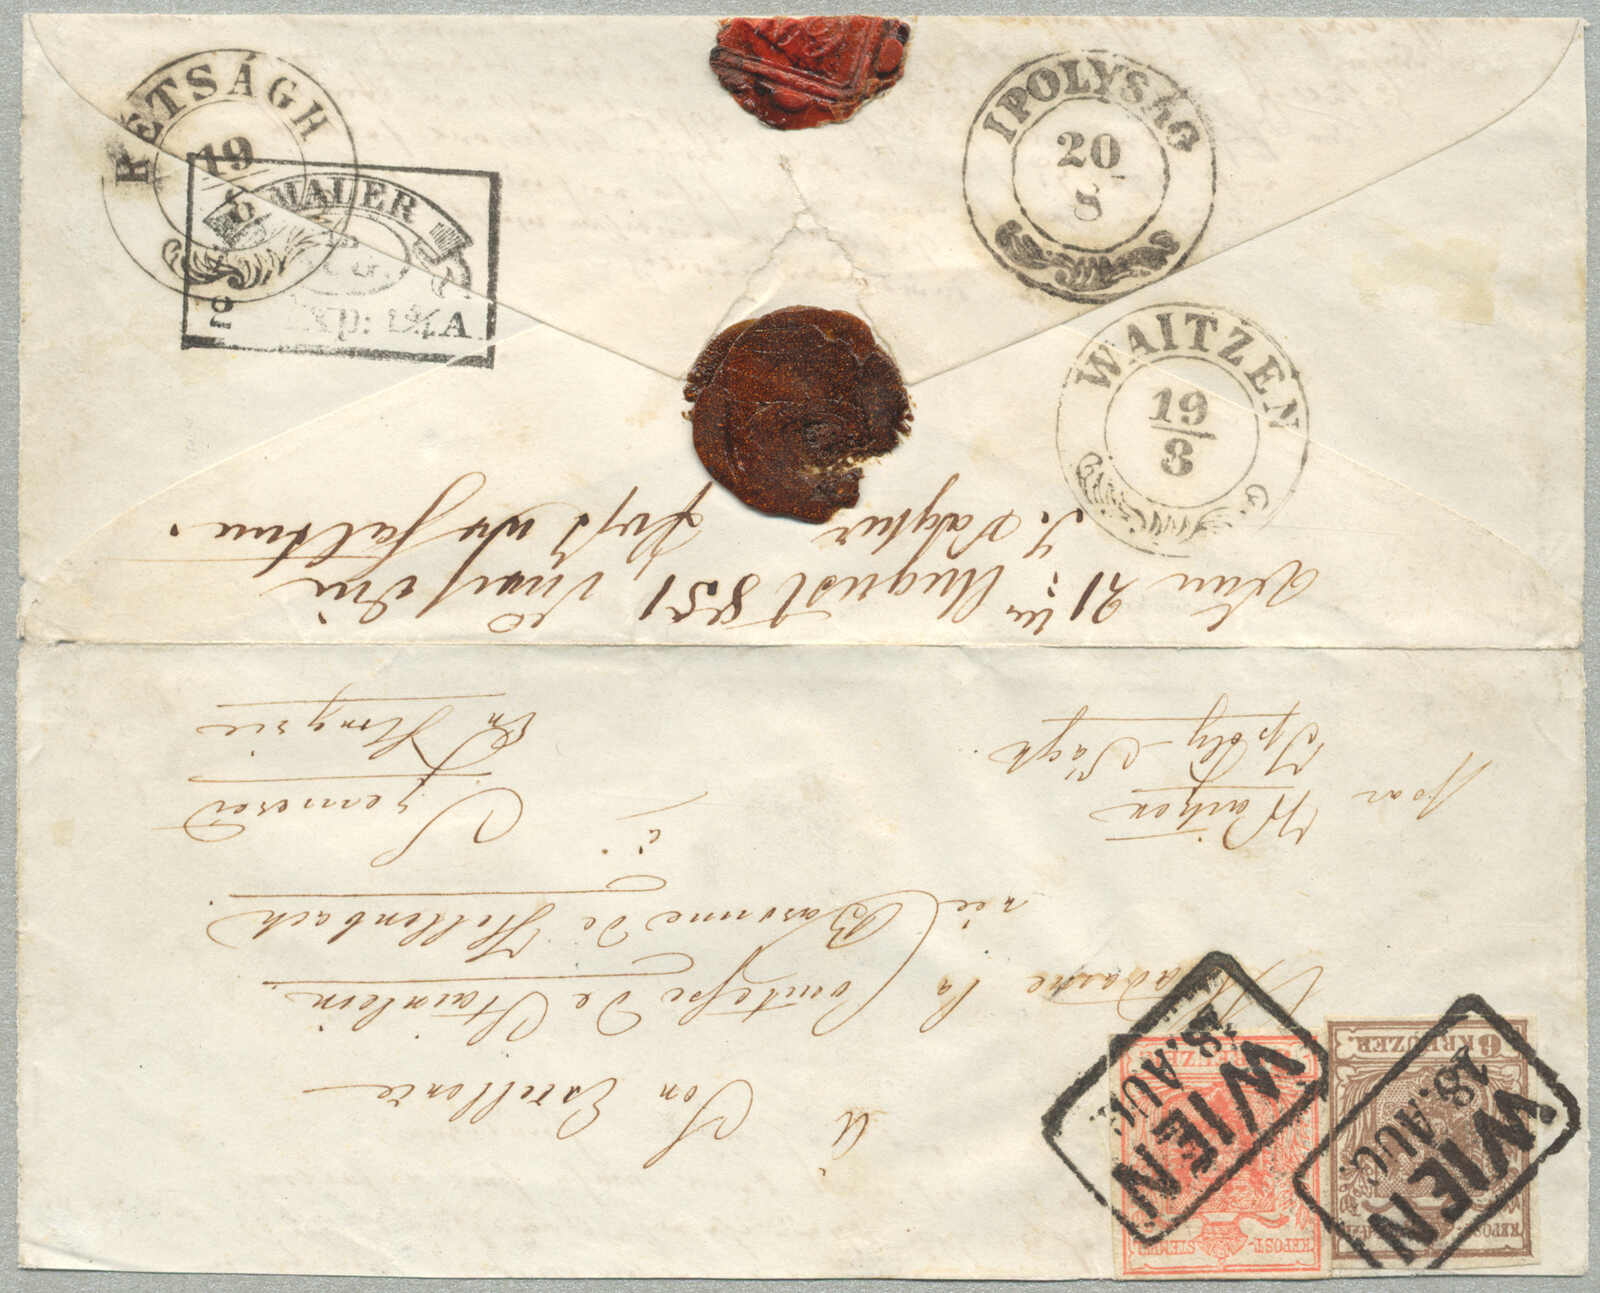 RÉTSÁGH
19
8
MAUER
Exp:
A
IPOLYSÁG
20
8
WAITZEN
19
8
den 21ten August 851
à
Son Excellence
Madame la Comtesse De Stainlein
née Baronne De Hellenbach
à
Szemeréd
En Hongrie
pour
Waitzen
Ipoly-Ságh
WIEN
18. AUG.
WIEN
18. AUG.
KKPOST-
STEMPEL
KREUZER
KKPOST-
STEMPEL
6 KREUZER